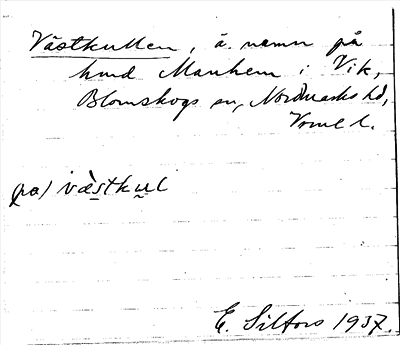 Västkullen, ä. namn på
hmd Manhem i Vik,
Blomskogs sn, Nordmarks hd,
Vrml l.
på) vä̀stkul
E. Silfors 1937.